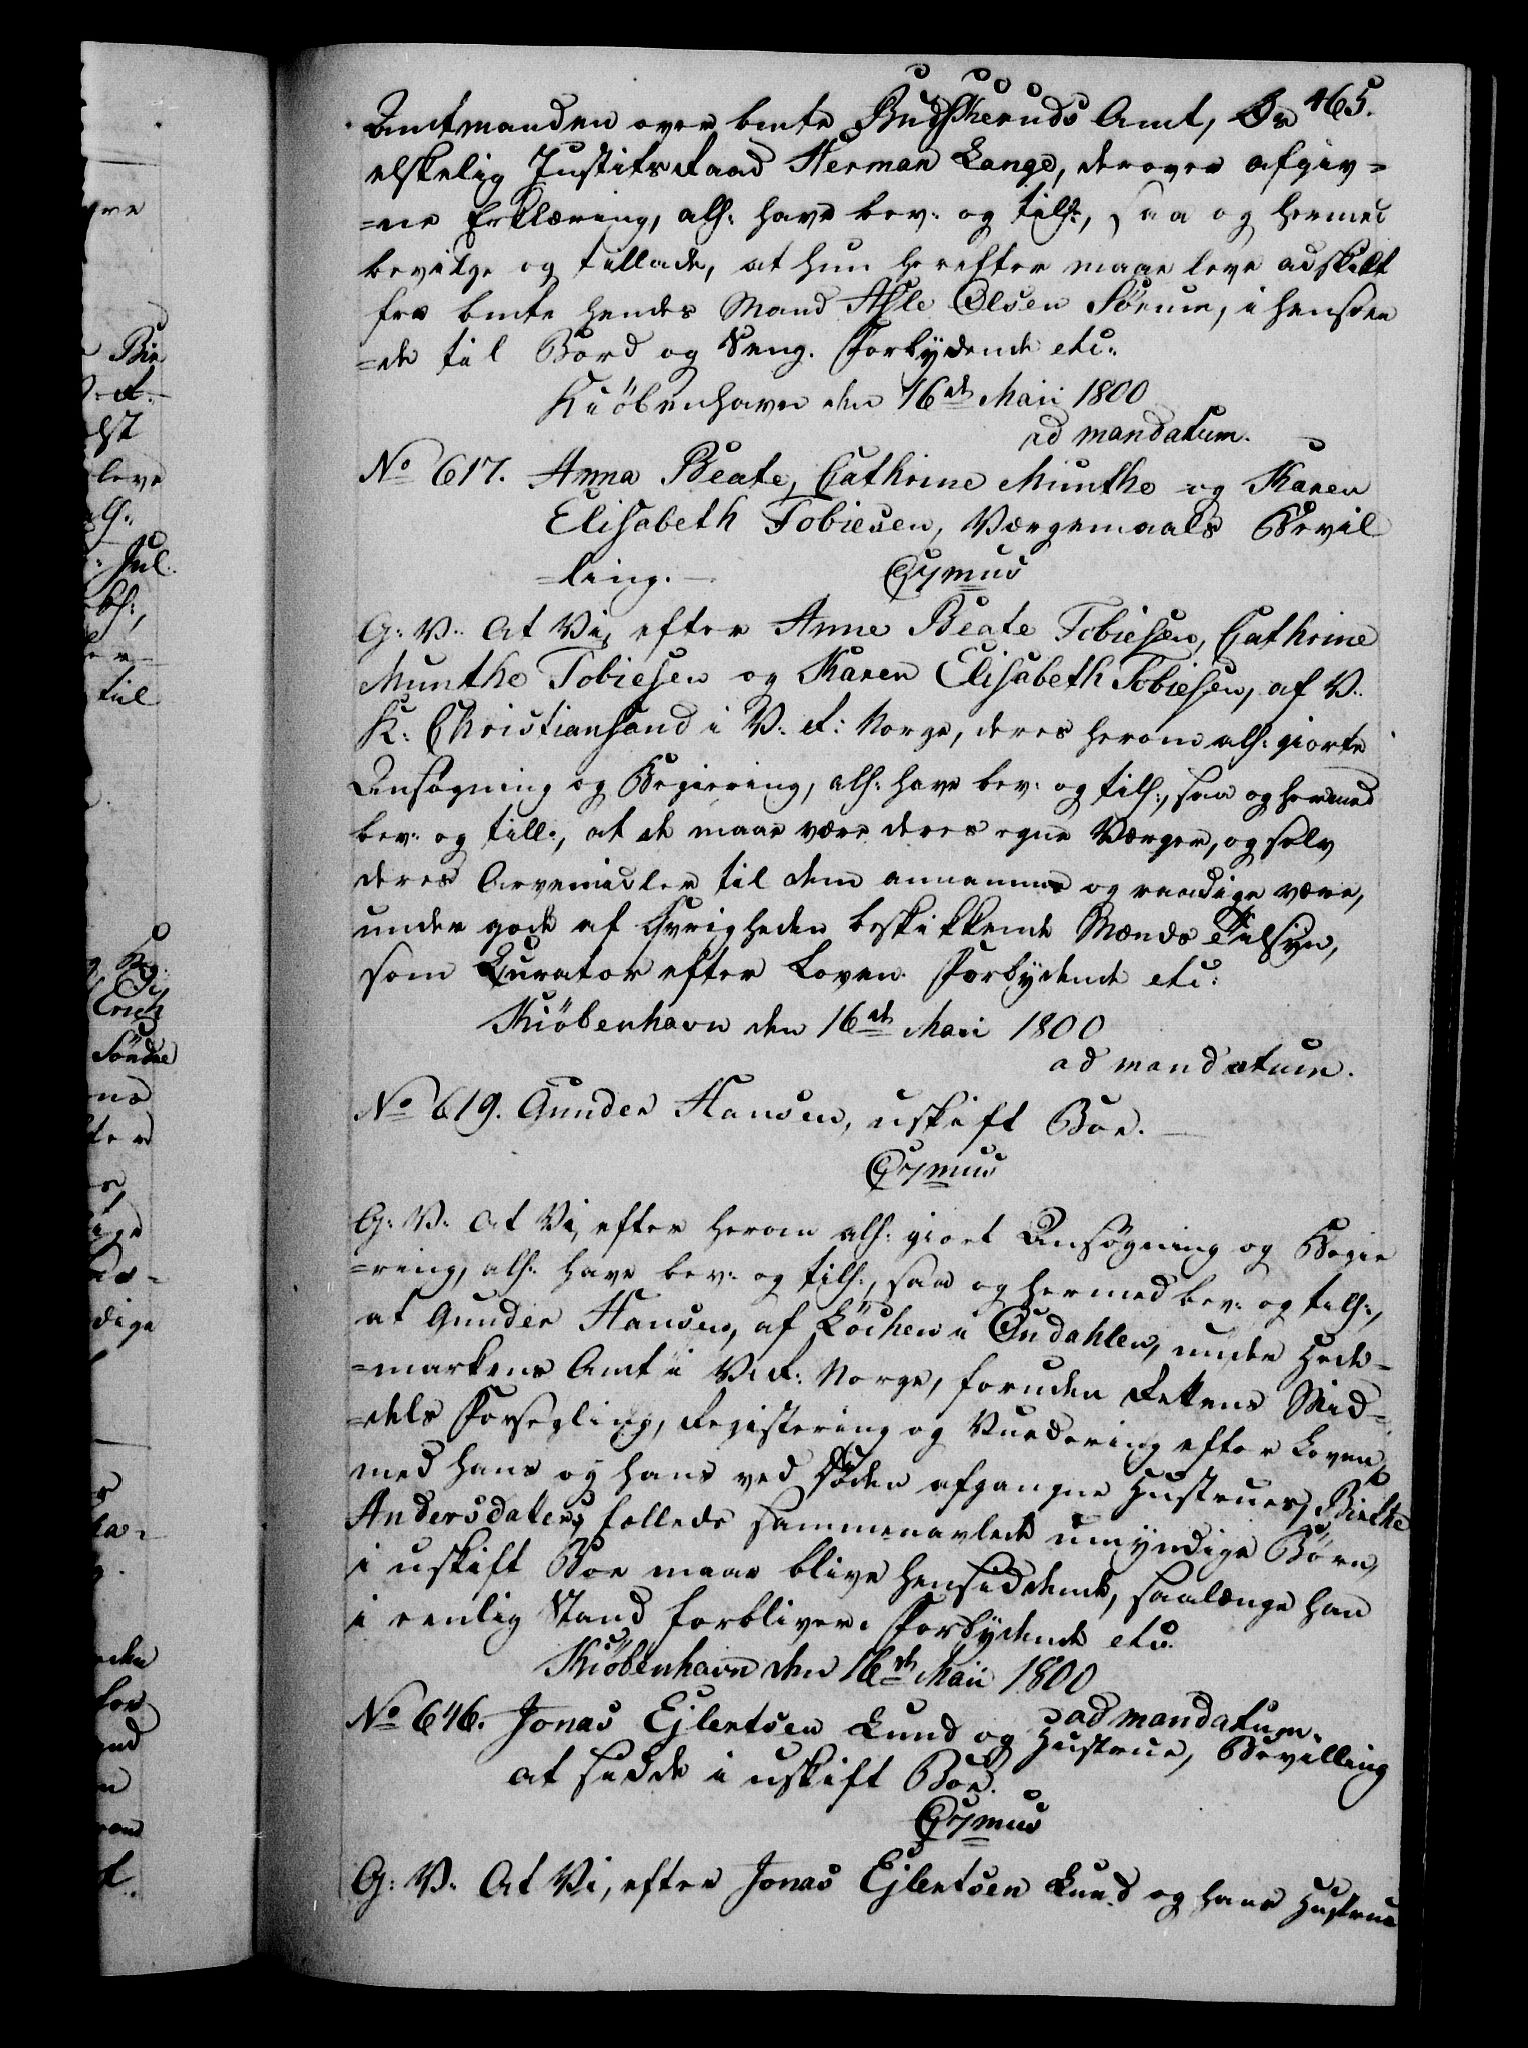 465.
Amtmanden over bmte Budskeruds Amt, Os
elskelig Justitsraad Herman Lange, derover afgiv=
=ne Erklæring, alf: have bev: og tilf:, saa og hermed
bevilge og tillade, at hun herefter maae leve adskilt
fra bmte hendes Mand Atle Olsen Sörum, i henseen
=de til Bord og Seng. Forbydende etc:
Kiöbenhavn den 16de Maii 1800
ad mandatum.
No 617. Anna Beate, Cathrine Munthe og Karen
Elisabeth Tobiesen, Værgemaals Bevil
=ling. —
G: V: At Vi, efter Anne Beate Tobiesen, Cathrine
Munthe Tobiesen og Karen Elisabeth Tobiesen, af V.
K: Christiansand i V: R: Norge, deres herom alf: giorte
Ansøgning og Begiering, alf: have bev: og tilf:, saa og hermed
bev: og till:, at de maae være deres egne Værger, og selv
deres Arvemidler til dem annamme og raadige være,
under gode af Øvrigheden beskikkende Mænds Tilsyn,
som Curator efter Loven. Forbydende etc:
Kiöbenhavn den 16de Maii 1800
ad mandatum.
No 619. Gunder Hansen, uskift Boe. —
G: V: At Vi, efter herom alf: giort Ansøgning og Begie
=ring, alf: have bev: og tilf:, saa og hermed bev: og tilf:,
at Gunder Hansen, af Löchen i Oudahlen, under Hede=
=markens Amt i V: R: Norge, foruden Rettens Mid=
=dels Forsegling, Registering og Vurdering efter Loven,
med hans og hans ved Døden afgangne Hustrues, Birthe
Andersdatters, fælleds sammenavlede umyndige Børn,
i uskift Boe maae blive hensiddende, saalænge han
i eenlig Stand forbliver. Forbydende etc.
Kiöbenhavn den 16de Maii 1800
ad mandatum.
No 646. Jonas Ejlertsen Lund og Hustrue, Bevilling
at sidde i uskift Boe.
G: V: At Vi, efter Jonas Ejlertsen Lund og hans Hustrue